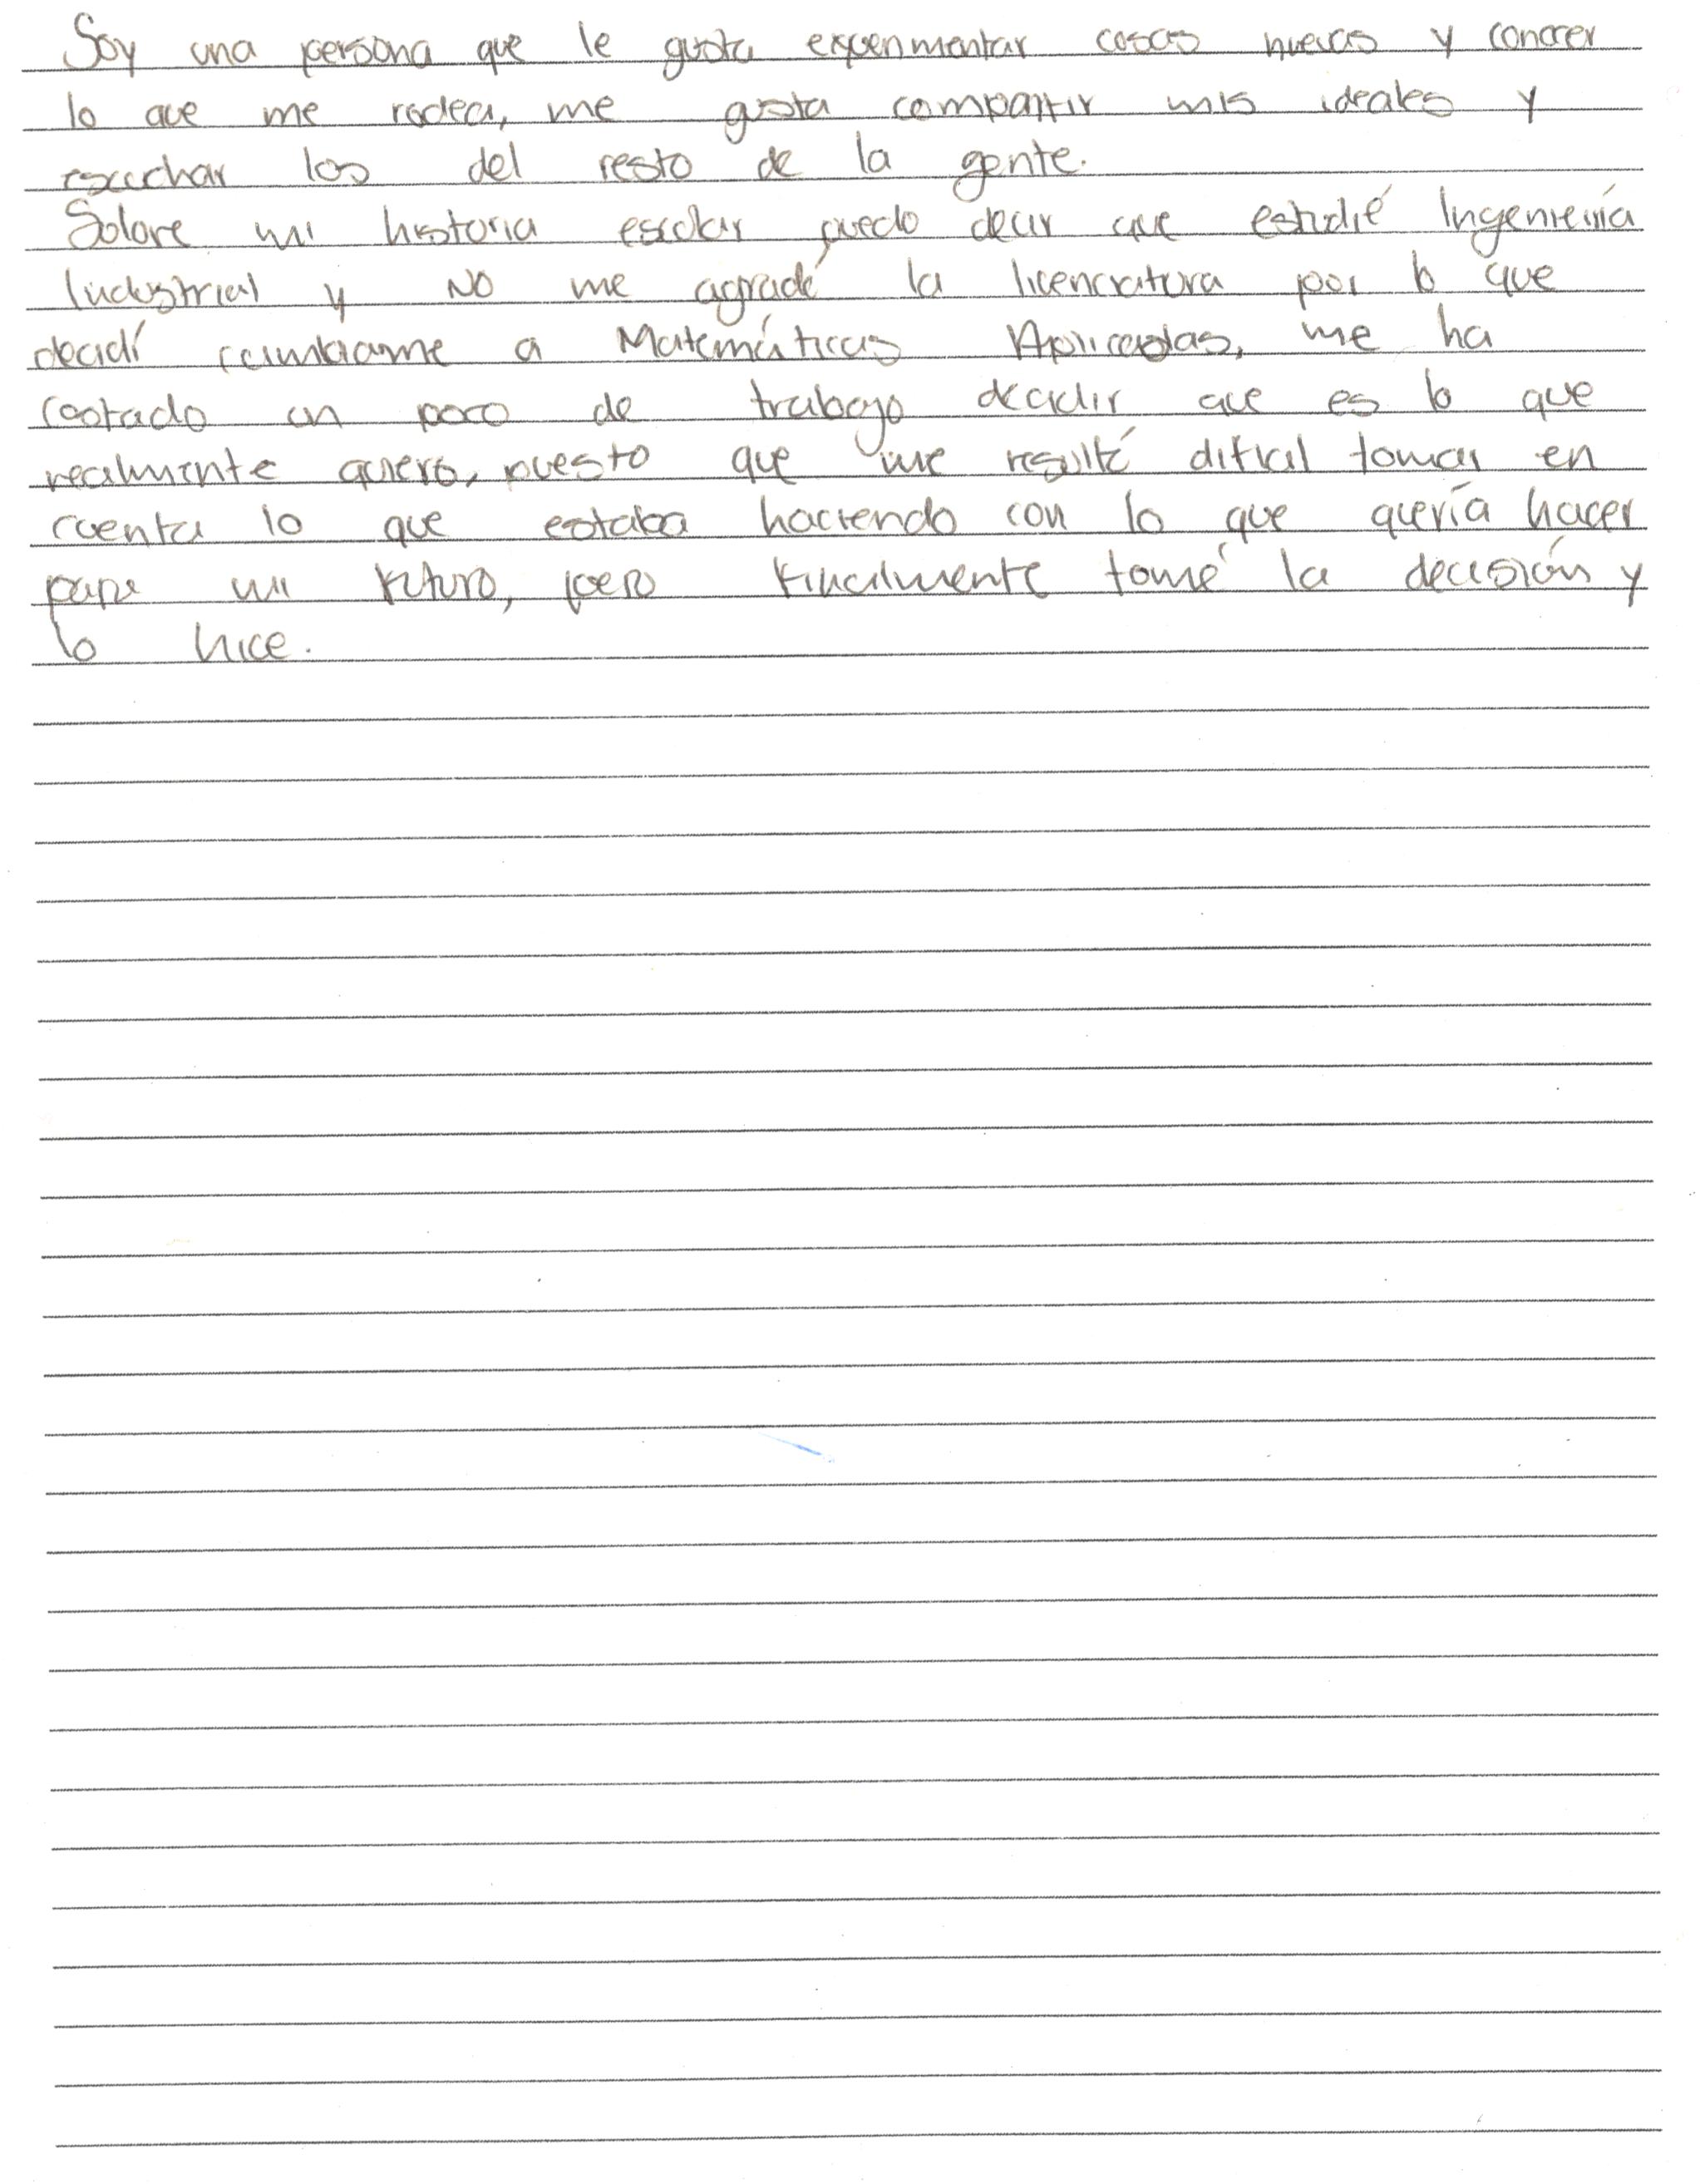 Soy una persona que le gusta experimentar cosas nuevas y conocer
lo que me rodea, me gusta compartir mis ideales y
escuchar los del resto de la gente.
Sobre mi historia escolar puedo decir que estudié Ingeniería
Industrial y NO me agradó la licenciatura por lo que
decidí cambiarme a Matemáticas Aplicadas, me ha
costado un poco de trabajo decidir que es lo que
realmente quiero, puesto que me resultó difícil tomar en
cuenta lo que estaba haciendo con lo que quería hacer
para mi futuro, pero finalmente tomé la decisión y
lo hice.